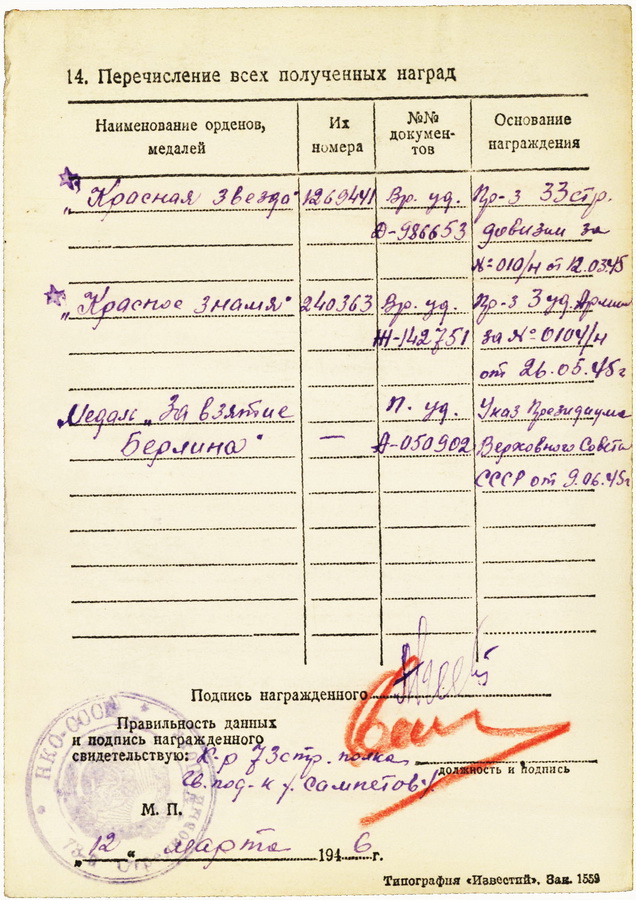 14. Перечисление всех полученных наград
Наименование орденов, медалей
Их номера
№№ докумен-тов
Основание награждения
„Красная звезда" 1269441 Вр. уд. Пр-з 33 стр.
А-986653 дивизии за
№ 010/н от 12.03.45
„Красное знамя" 240363 Вр. уд. Пр-з 3 уд. Армии
Ж-142751 за № 0104/н
от 26.05.45г
Медаль „За взятие П. уд. Указ Президиума
Берлина" — А-050902 Верховного Совета
СССР от 9.06.45г
Подпись награжденного
Правильность данных
и подпись награжденного
свидетельствую: К-р 73 стр. полка
Гв. под-к /. Сампетов /
должность и подпись
М. П.
НКО-СССР
73-й Стрелковый
„12" марта 1946 г.
Типография «Известий». Зак. 1559